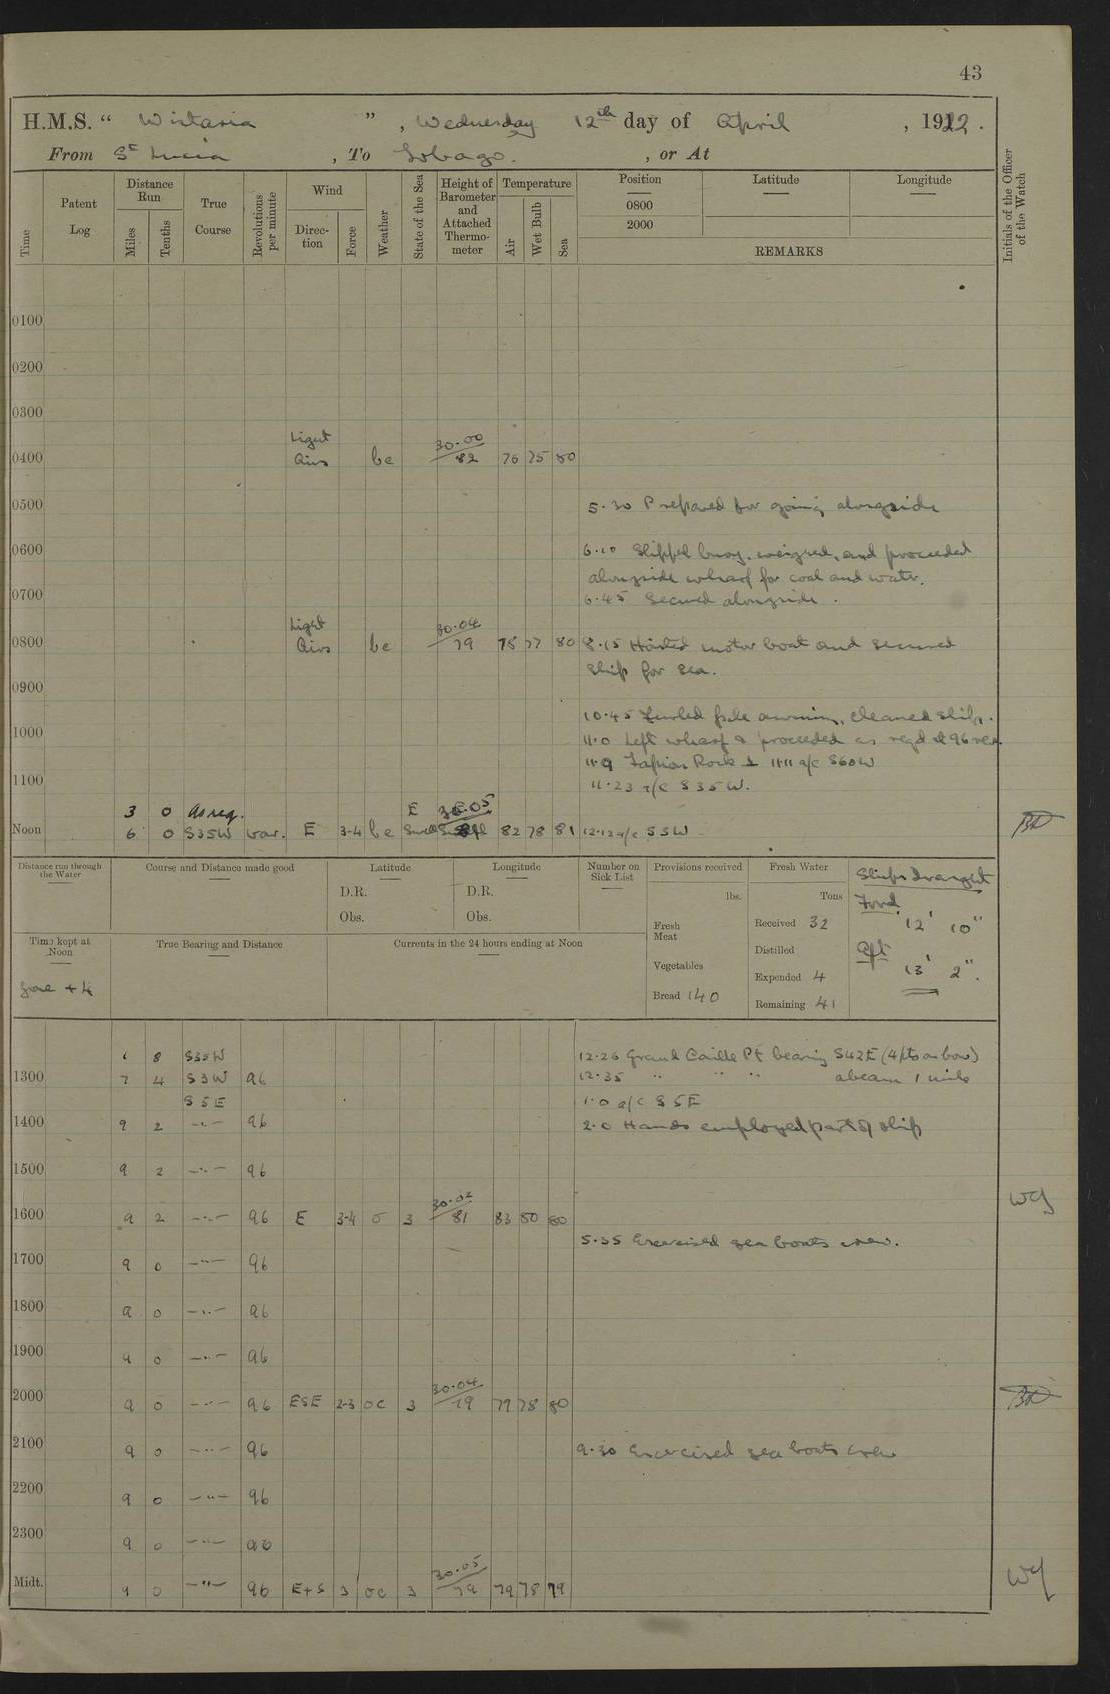 43
H.M.S. “ Wistaria ” , Wednesday 12th day of April , 1922 .
From St Lucia , To Tobago. , or At
Time
Patent Log
Distance Run
Miles
Tenths
True Course
Revolutions per minute
Wind
Direction
Force
Weather
State of the Sea
Height of Barometer and Attached Thermometer
Temperature
Air
Wet Bulb
Sea
Position
0800
2000
Latitude
Longitude
REMARKS
Initials of the Officer of the Watch
0100
0200
0300
Light 30.00
0400 Airs bc 82 76 75 80
0500 5.30 Prepared for going alongside
0600 6.10 Slipped buoy, weighed, and proceeded
alongside wharf for coal and water.
0700 6.45 Secured alongside .
Light 30.04
0800 Airs bc 79 78 77 80 8.15 Hoisted motor boat and secured
ship for sea.
0900
10.45 Furled awning, cleaned ship.
1000 11.0 Left wharf & proceeded as reqd at 96 revs
11.9 Tapion Rock 11.11 a/c S60W
1100 11.23 a/c S35W.
3 0 as req. E 30.05
Noon 6 0 S35W var. E 3-4 bc Swell 82 78 81 12.12 a/c S3W
Distance run through the Water
Course and Distance made good
Latitude
D.R.
Obs.
Longitude
D.R.
Obs.
Number on Sick List
Provisions received
lbs.
Fresh Meat
Vegetables
Bread 140
Fresh Water
Tons
Received 32
Distilled
Expended 4
Remaining 41
Ships draught
Ford
12' 10"
Aft
13' 2".
Time kept at Noon
Zone + 4
True Bearing and Distance
Currents in the 24 hours ending at Noon
1 8 S35W 12.26 Grand Caille Pt bearing S42E (4 pts on bow)
1300 7 4 S3W 96 12.35 " " " abeam 1 mile
S5E 1.0 a/c S5E
1400 9 2 —"— 96 2.0 Hands employed part of ship
1500 9 2 —"— 96
30.02
1600 9 2 —"— 96 E 3-4 o 3 81 83 80 80 WG
5.35 Exercised sea boats crew.
1700 9 0 —"— 96
1800 9 0 —"— 96
1900 9 0 —"— 96
30.04
2000 9 0 —"— 96 ESE 2-3 oc 3 79 79 78 80
2100 9 0 —"— 96 9.30 Exercised sea boats crew
2200 9 0 —"— 96
2300 9 0 —"— 96
30.05
Midt. 9 0 —"— 96 E+S 3 oc 3 79 79 78 79 WG